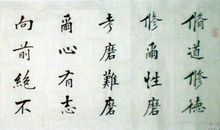 脩道修德
修爾性磨
考磨難磨
爾心有志
向前絕不